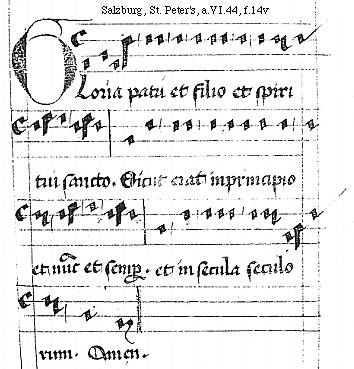 Salzburg, St. Peter's, a.VI.44, f.14v
Gloria patri et filio et spiri
tui sancto. Sicut erat in principio
et nūc et semp. et in secula seculo
rum. Amen.